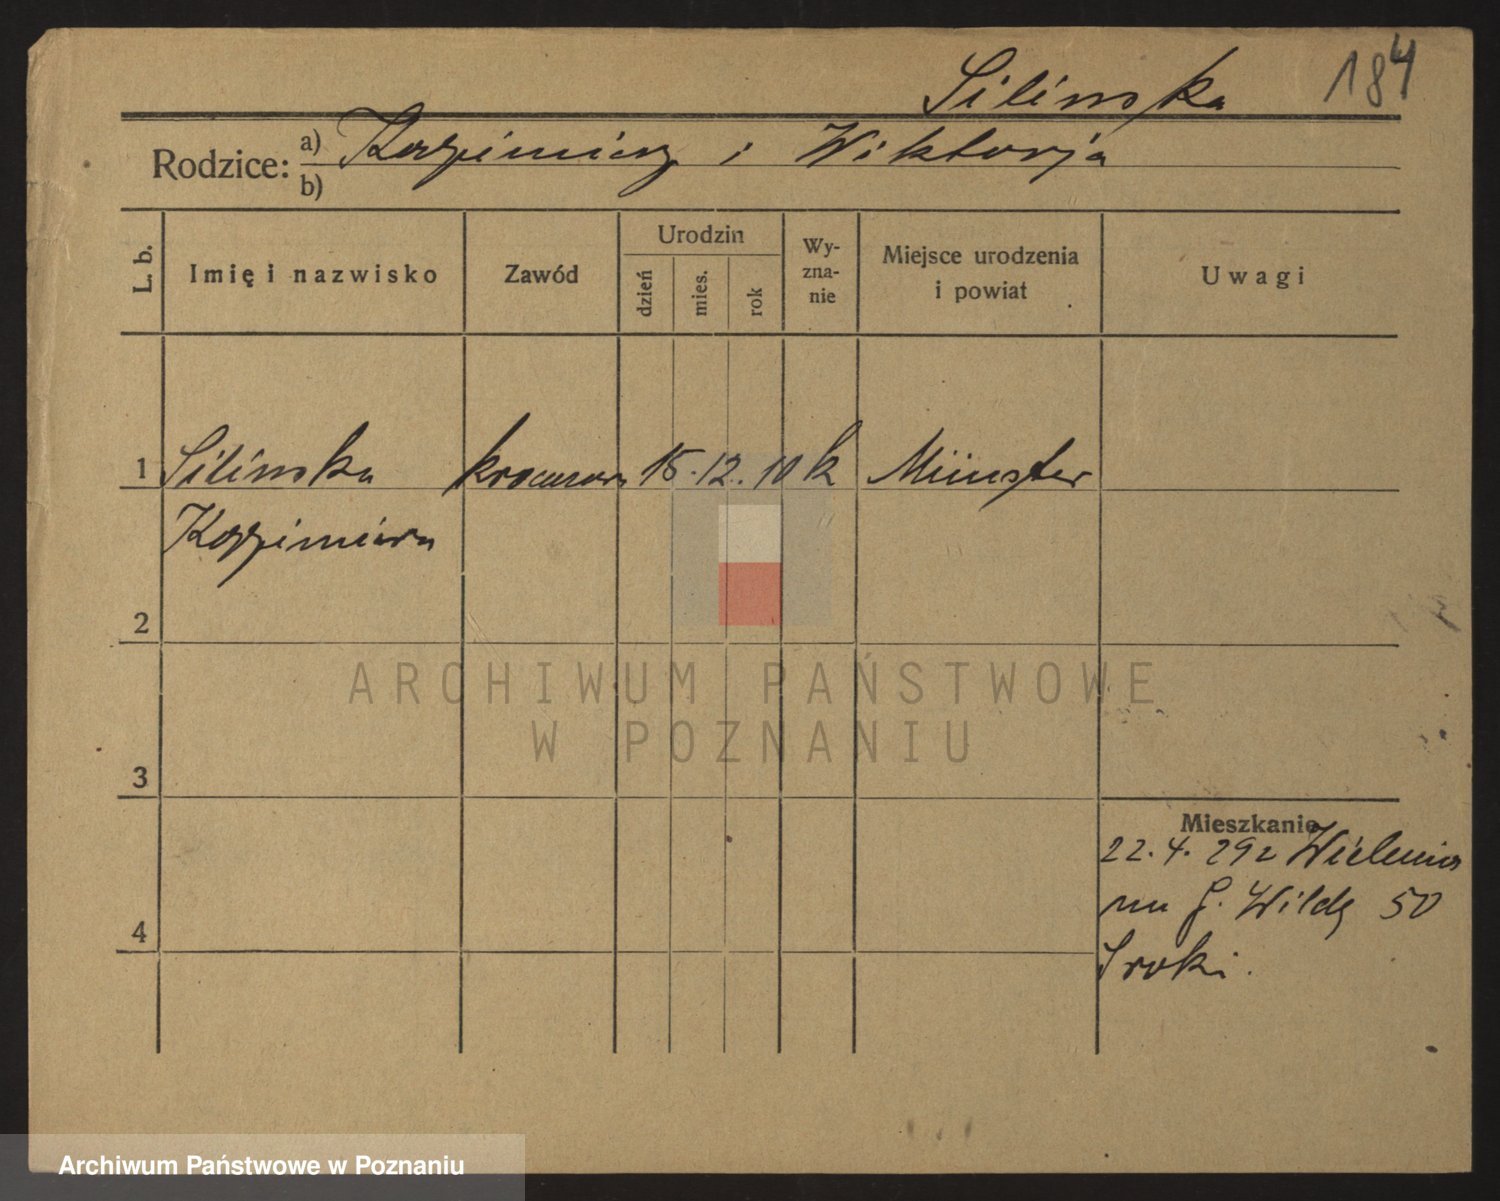 Silinska 184
Rodzice: a) Kazimierz i Wiktorja
b)
L. b. Imię i nazwisko Zawód Urodzin dzień mies. rok Wy-zna-nie Miejsce urodzenia i powiat Uwagi
1 Silinska krawcowa 15. 12. 10 k Münster
Kazimiera
2
3
4
Mieszkanie
22. 4. 29 z
na G. Wildę 50
Sroki.
ARCHIWUM PAŃSTWOWE
W POZNANIU
Archiwum Państwowe w Poznaniu